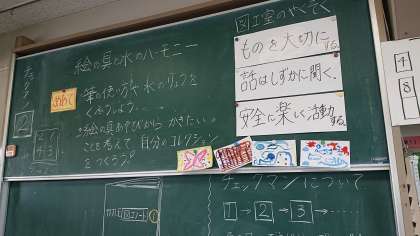 絵の具と水のハーモニー
めあて
筆の使い方や水のりょうを
くふうしよう
絵の具あそびから かきたい
ことを考えて 自分のコレクション
をつくろう
図工室のやくそく
ものを大切にする。
話はしずかに聞く。
安全に楽しく活動する。
チェックマンについて
1→2→3→
4
8